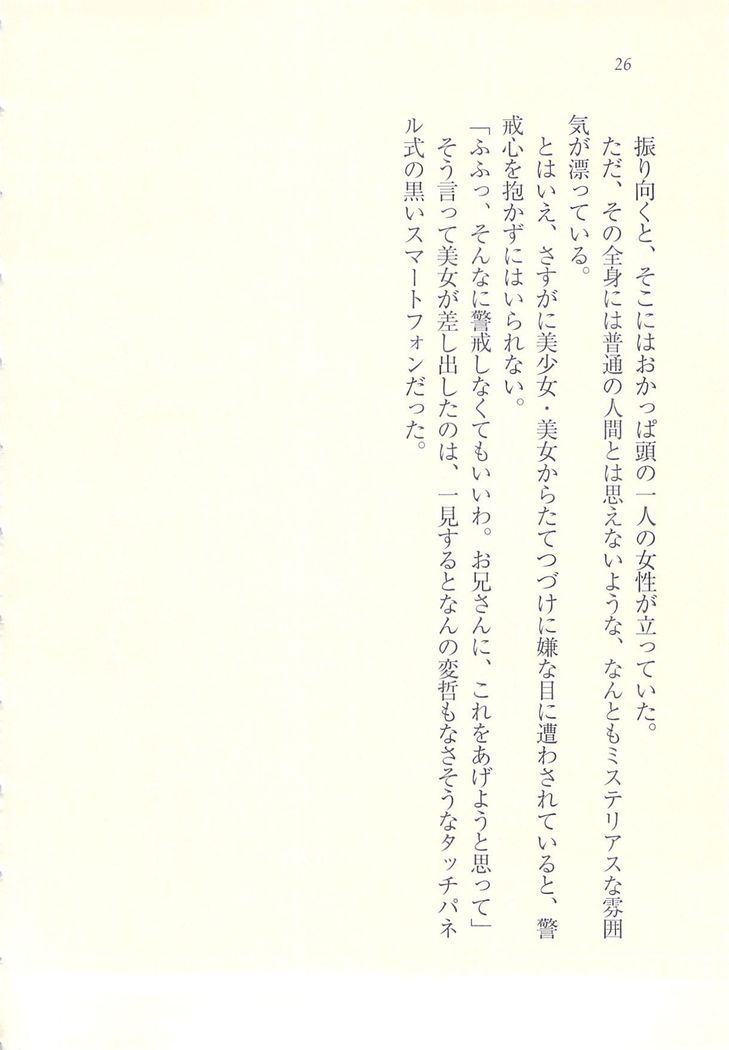 26
振り向くと、そこにはおかっぱ頭の一人の女性が立っていた。
ただ、その全身には普通の人間とは思えないような、なんともミステリアスな雰囲
気が漂っている。
とはいえ、さすがに美少女・美女からたてつづけに嫌な目に遭わされていると、警
戒心を抱かずにはいられない。
「ふふっ、そんなに警戒しなくてもいいわ。お兄さんに、これをあげようと思って」
そう言って美女が差し出したのは、一見するとなんの変哲もなさそうなタッチパネ
ル式の黒いスマートフォンだった。